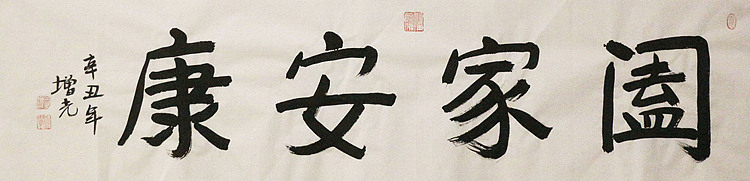 阖家安康
辛丑年
增光